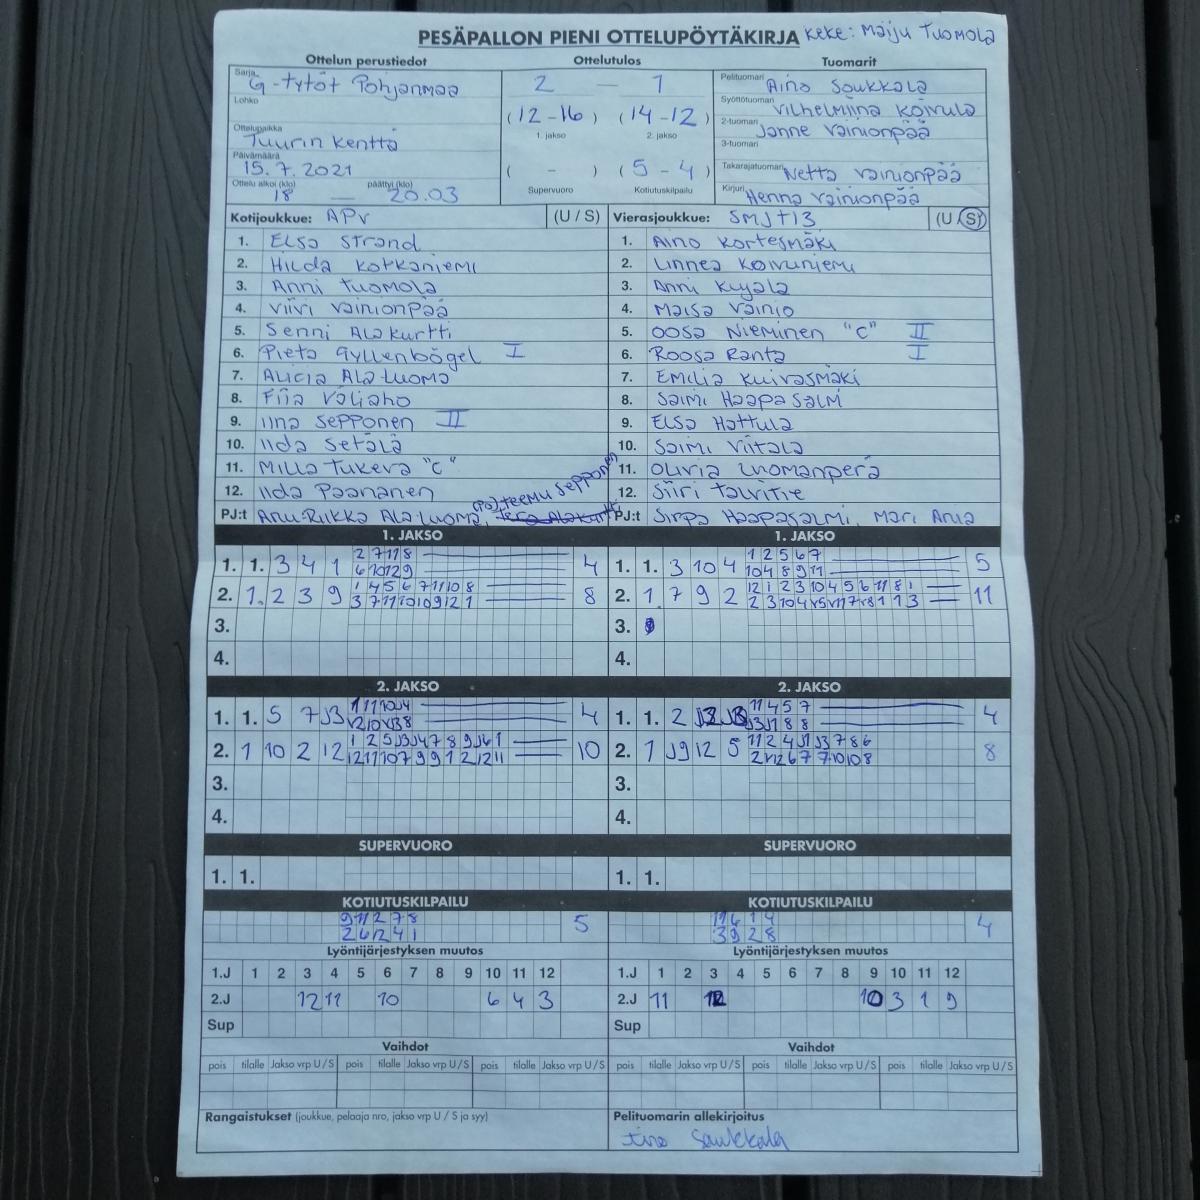 PESÄPALLON PIENI OTTELUPÖYTÄKIRJA keke: Maiju Tuomola
Ottelun perustiedot Ottelutulos Tuomarit
Sarja G-tytöt Pohjanmaa
Lohko
Ottelupaikka Tuurin kenttä
Päivämäärä 15.7.2021
Ottelu alkoi (klo) 18 — päättyi (klo) 20.03
2 — 1
(12-16) (14-12)
1. jakso 2. jakso
( - ) (5-4)
Supervuoro Kotiutuskilpailu
Pelituomari Aino Saukkola
Syöttötuomari Vilhelmiina Koivula
2-tuomari Janne Vainionpää
3-tuomari
Takarajatuomari Netta Vainionpää
Kirjuri Henna Vainionpää
Kotijoukkue: APV (U / S)
1. Elsa Strand
2. Hilda Korkaniemi
3. Anni Tuomola
4. Viivi Vainionpää
5. Senni Alakurtti
6. Pieta Gyllenbögel I
7. Alicia Ala-Luoma
8. Fiia Väliaho
9. Iina Sepponen II
10. Iida Setälä
11. Milla Tukeva "C"
12. Iida Paananen
PJ:t Anu-Riikka Ala-Luoma, (PO) Teemu Sepponen
Vierasjoukkue: SMJ t13 (U / S)
1. Aino Kortesmäki
2. Linnea Koivuniemi
3. Anni Kujala
4. Maisa Vainio
5. Oosa Nieminen "C" II
6. Roosa Ranta I
7. Emilia Kuivasmäki
8. Saimi Haapasalmi
9. Elsa Hattula
10. Saimi Viitala
11. Olivia Luomanperä
12. Siiri Talvitie
PJ:t Sirpa Haapasalmi, Mari Ania
1. JAKSO
1. 1. 3 4 1 2 7 11 8 4
6 10 12 9
2. 1. 2 3 9 1 4 5 6 7 11 10 8 8
3 7 11 10 10 9 12 1
3.
4.
1. JAKSO
1. 1. 3 10 4 1 2 5 6 7 5
10 4 8 9 11
2. 1 7 9 2 12 1 2 3 10 4 5 6 11 8 1 11
3.
4.
2. JAKSO
1. 1. 5 7 J3 4
2. 1 10 2 12 1 2 5 J3 J4 7 8 9 J6 1 10
12 11 10 7 9 9 1 2 12 11
3.
4.
2. JAKSO
1. 1. 2 11 4 5 7 4
J3 J1 8 8
2. 1 J9 12 5 11 2 4 J1 J3 7 8 6 8
3.
4.
SUPERVUORO SUPERVUORO
1. 1. 1. 1.
KOTIUTUSKILPAILU
9 11 2 7 8 5
2 6 12 4 1
KOTIUTUSKILPAILU
11 6 1 4 4
3 9 2 8
Lyöntijärjestyksen muutos
1.J 1 2 3 4 5 6 7 8 9 10 11 12
2.J 12 11 10 6 4 3
Sup
Lyöntijärjestyksen muutos
1.J 1 2 3 4 5 6 7 8 9 10 11 12
2.J 11 12 10 3 1 9
Sup
Vaihdot Vaihdot
pois tilalle Jakso vrp U / S pois tilalle Jakso vrp U / S pois tilalle Jakso vrp U / S
pois tilalle Jakso vrp U / S pois tilalle Jakso vrp U / S pois tilalle Jakso vrp U / S
Rangaistukset (joukkue, pelaaja nro, jakso vrp U / S ja syy)
Pelituomarin allekirjoitus
Aino Saukkola